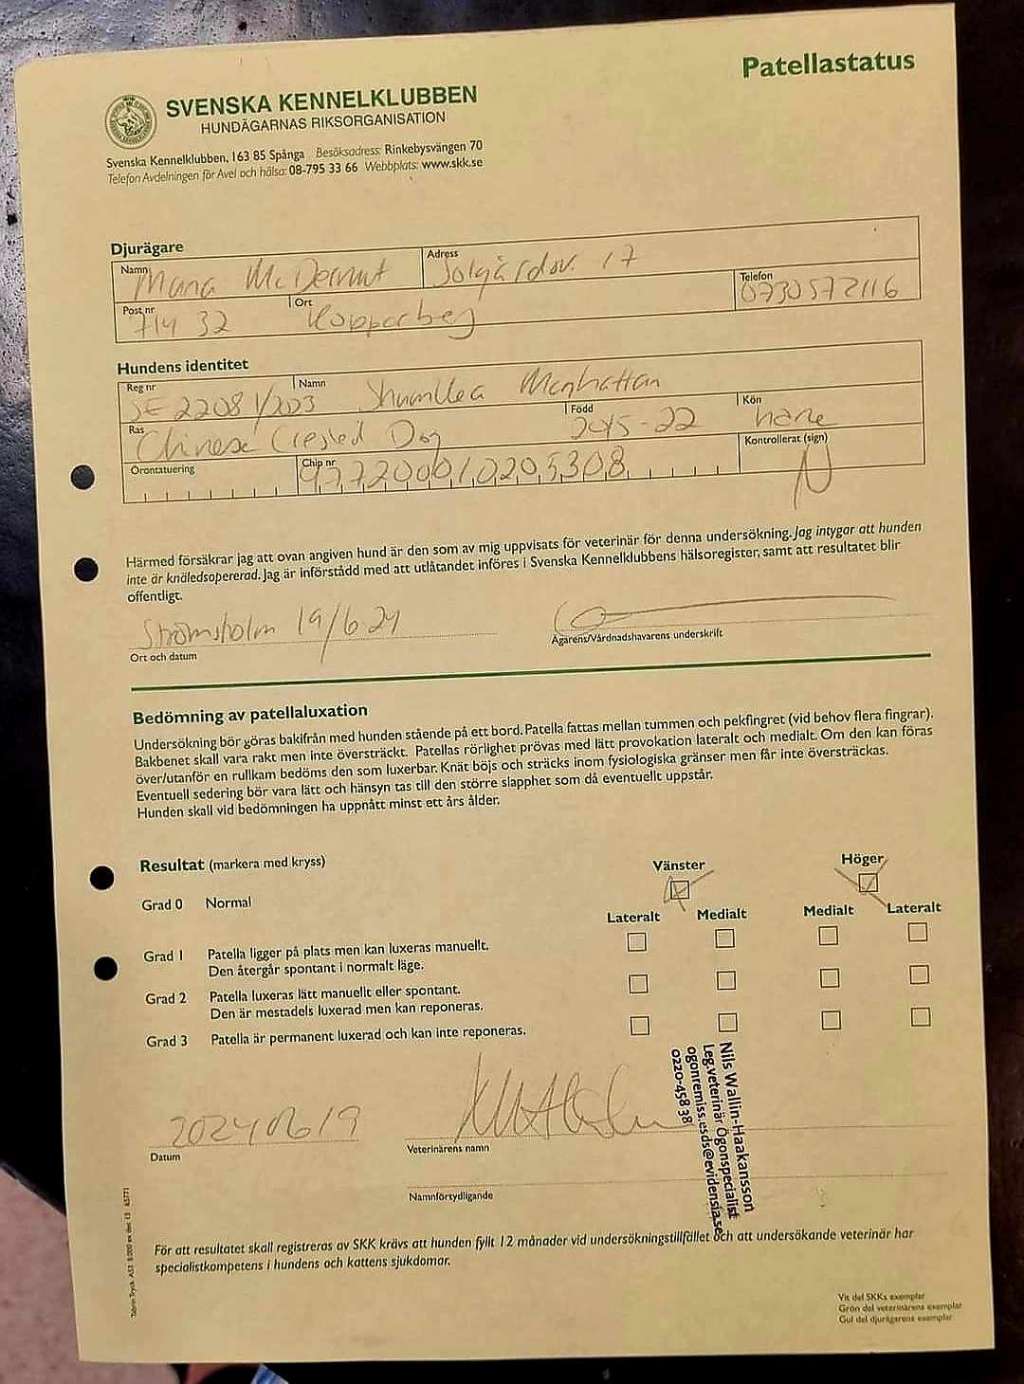 Patellastatus
SVENSKA KENNELKLUBBEN
HUNDÄGARNAS RIKSORGANISATION
Svenska Kennelklubben, 163 85 Spånga Besöksadress: Rinkebysvängen 70
Telefon Avdelningen för Avel och hälsa: 08-795 33 66 Webbplats: www.skk.se
Djurägare
Namn Adress
McDermut 17
Telefon
0730572116
Post nr Ort
714 32 Kopparberg
Hundens identitet
Reg nr Namn
SE 22081/203 Manhattan
Ras Född Kön
Chinese Crested Dog hane
Orontatuering Chip nr Kontrollerat (sign)
977200010205308
Härmed försäkrar jag att ovan angiven hund är den som av mig uppvisats för veterinär för denna undersökning. Jag intygar att hunden
inte är knäledsopererad. Jag är införstådd med att utlåtandet införes i Svenska Kennelklubbens hälsoregister, samt att resultatet blir
offentligt.
Strömsholm 19/6 24
Ort och datum Ägarens/Vårdnadshavarens underskrift
Bedömning av patellaluxation
Undersökning bör göras bakifrån med hunden stående på ett bord. Patella fattas mellan tummen och pekfingret (vid behov flera fingrar).
Bakbenet skall vara rakt men inte översträckt. Patellas rörlighet prövas med lätt provokation lateralt och medialt. Om den kan föras
över/utanför en rullkam bedöms den som luxerbar. Knät böjs och sträcks inom fysiologiska gränser men får inte översträckas.
Eventuell sedering bör vara lätt och hänsyn tas till den större slapphet som då eventuellt uppstår.
Hunden skall vid bedömningen ha uppnått minst ett års ålder.
Resultat (markera med kryss) Vänster Höger
Grad 0 Normal
Lateralt Medialt Medialt Lateralt
Grad 1 Patella ligger på plats men kan luxeras manuellt.
Den återgår spontant i normalt läge.
Grad 2 Patella luxeras lätt manuellt eller spontant.
Den är mestadels luxerad men kan reponeras.
Grad 3 Patella är permanent luxerad och kan inte reponeras.
Nils Wallin-Haakansson
Leg.veterinär Ögonspecialist
ogonremiss.esds@evidensia.se
0220-458 38
20240619
Datum Veterinärens namn
Namnförtydligande
För att resultatet skall registreras av SKK krävs att hunden fyllt 12 månader vid undersökningstillfället och att undersökande veterinär har
specialistkompetens i hundens och kattens sjukdomar.
Vit del SKKs exemplar
Grön del veterinärens exemplar
Gul del djurägarens exemplar